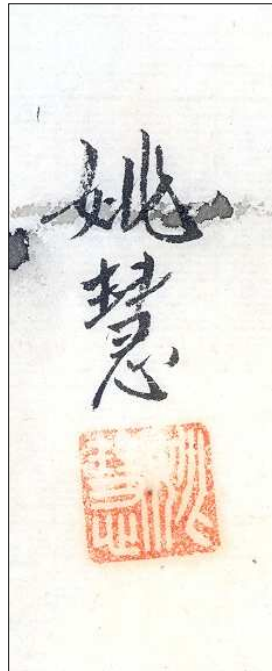 姚慧
姚慧